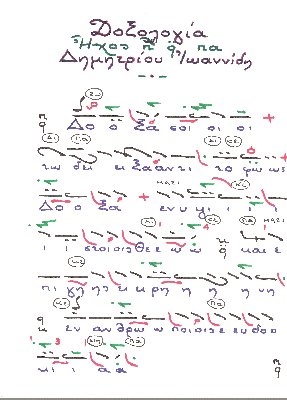 Δοξολογία
Ἦχος πα
Δημητρίου Ἰωαννίδη
Δο ο ξα σοι οι οι
τω δει ει ξα αν τι το φω ως
Δο ο ξα εν υ ψι ι
ι ι στοι οις Θε ε ω ω και ε
πι γη ης ει ρη η η νη
εν αν θρω ω ποι οις ευ δο ο
κι ι α α